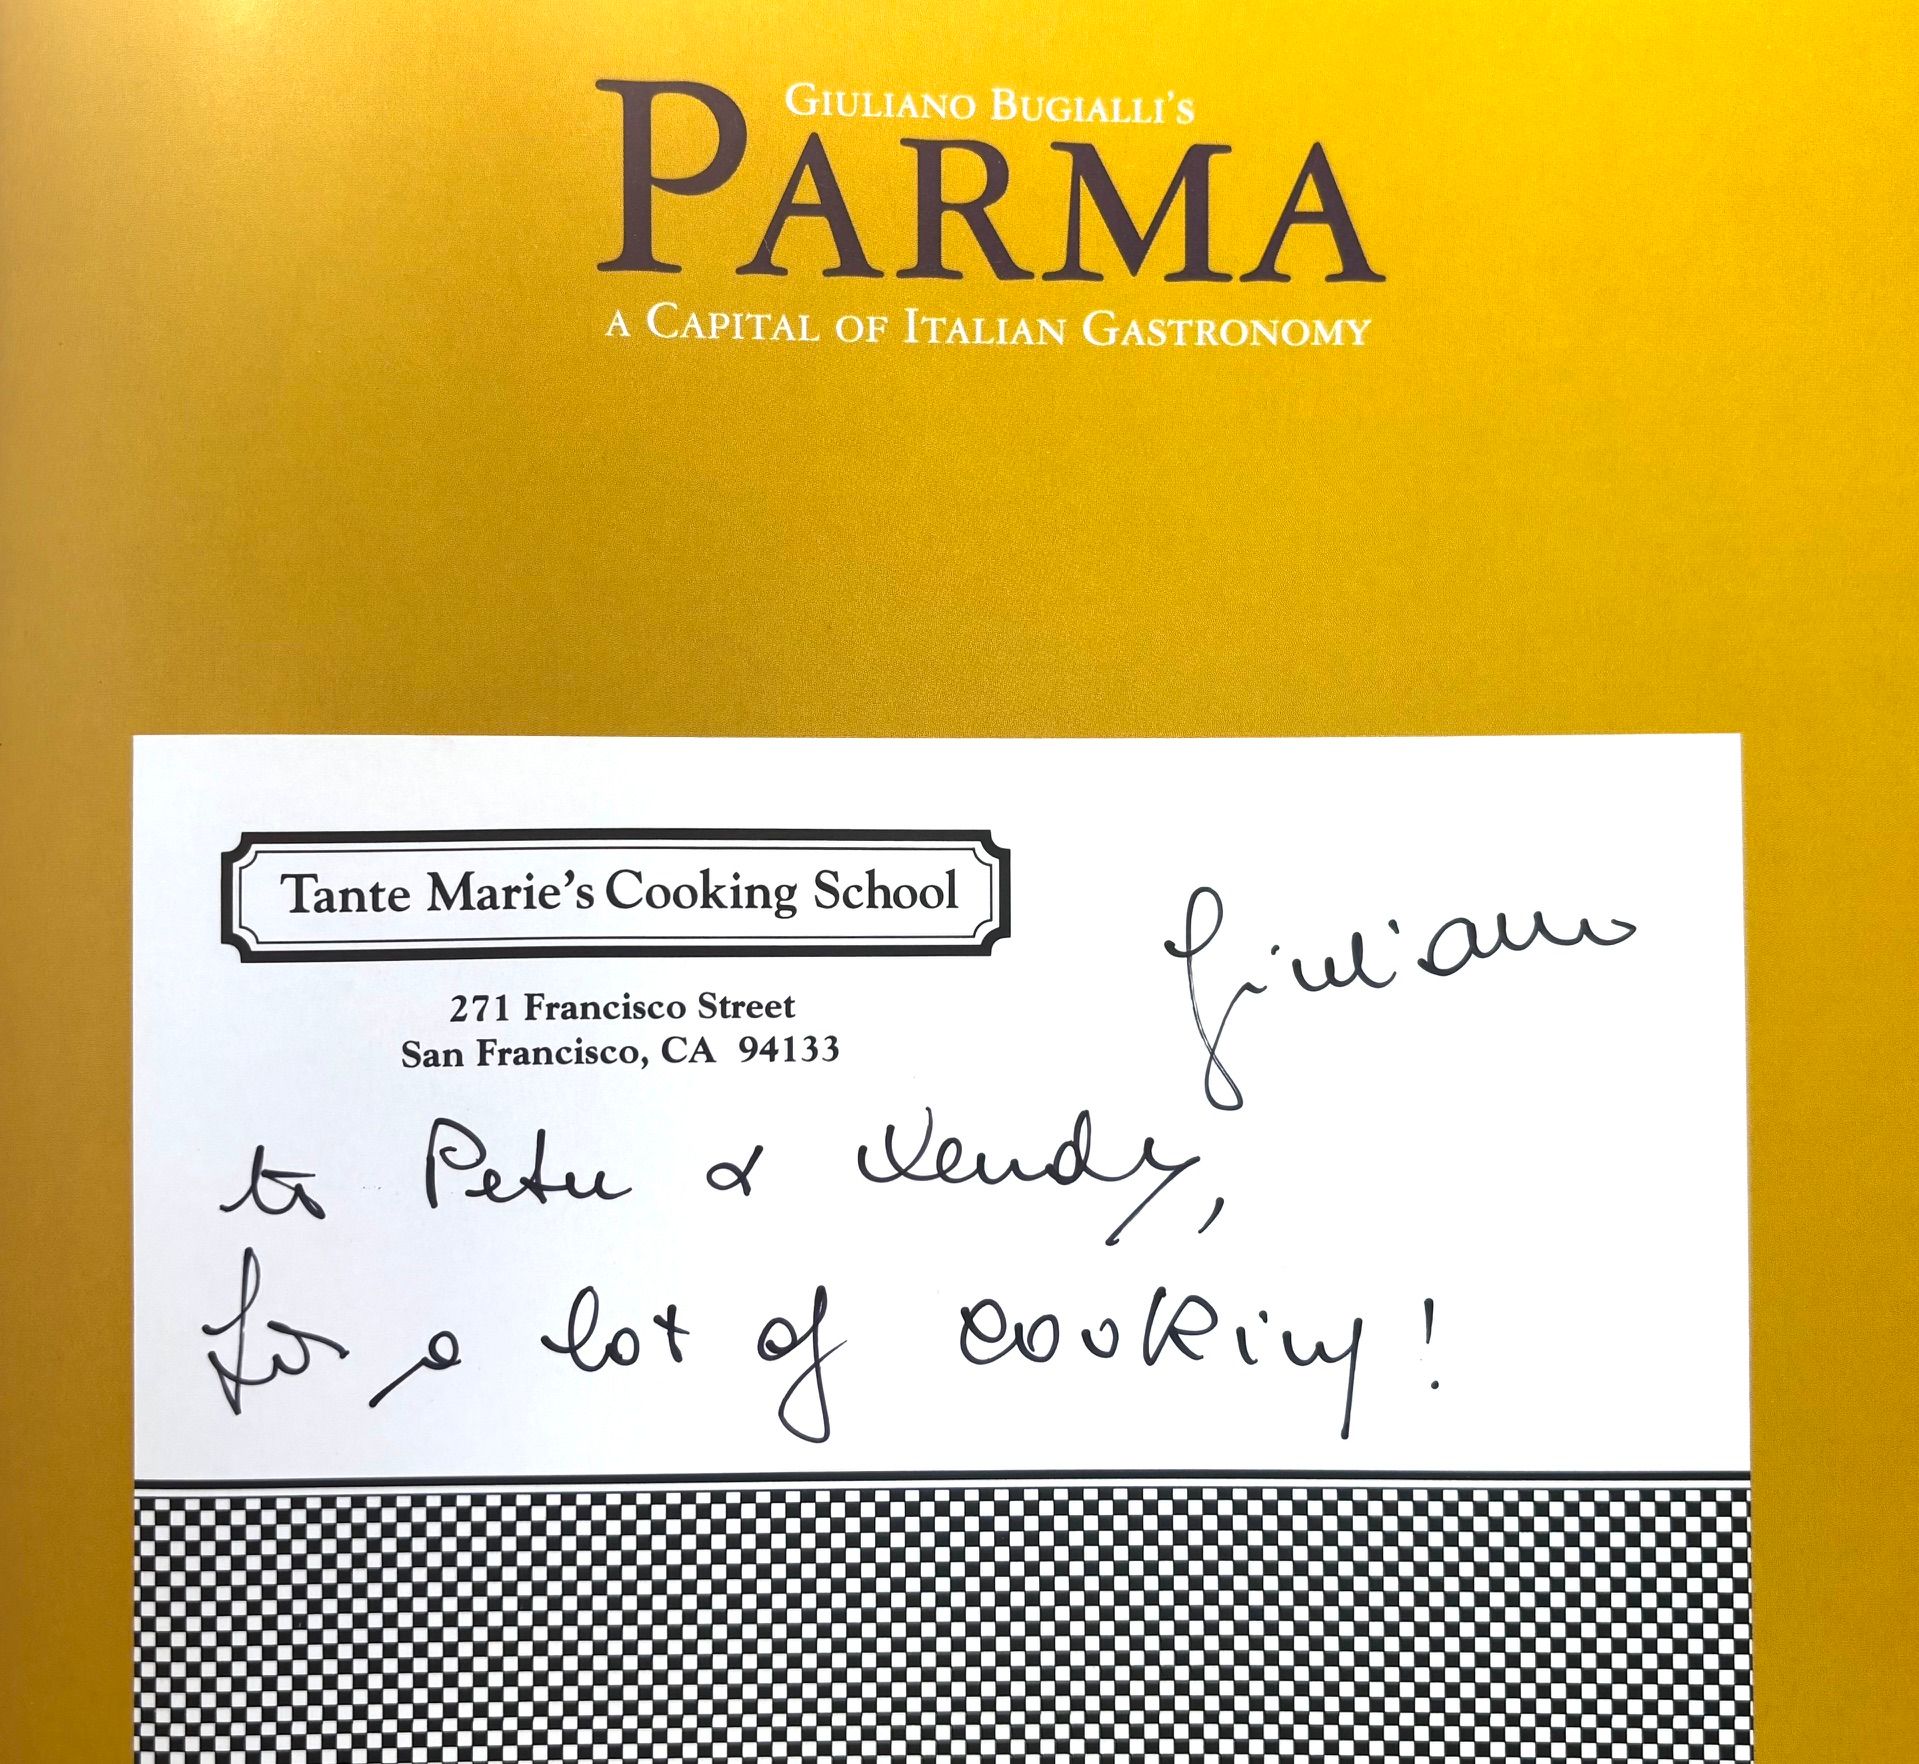 GIULIANO BUGIALLI'S
PARMA
A CAPITAL OF ITALIAN GASTRONOMY
Tante Marie's Cooking School
271 Francisco Street
San Francisco, CA 94133
Giuliano
to Peter & Wendy,
for a lot of cooking!